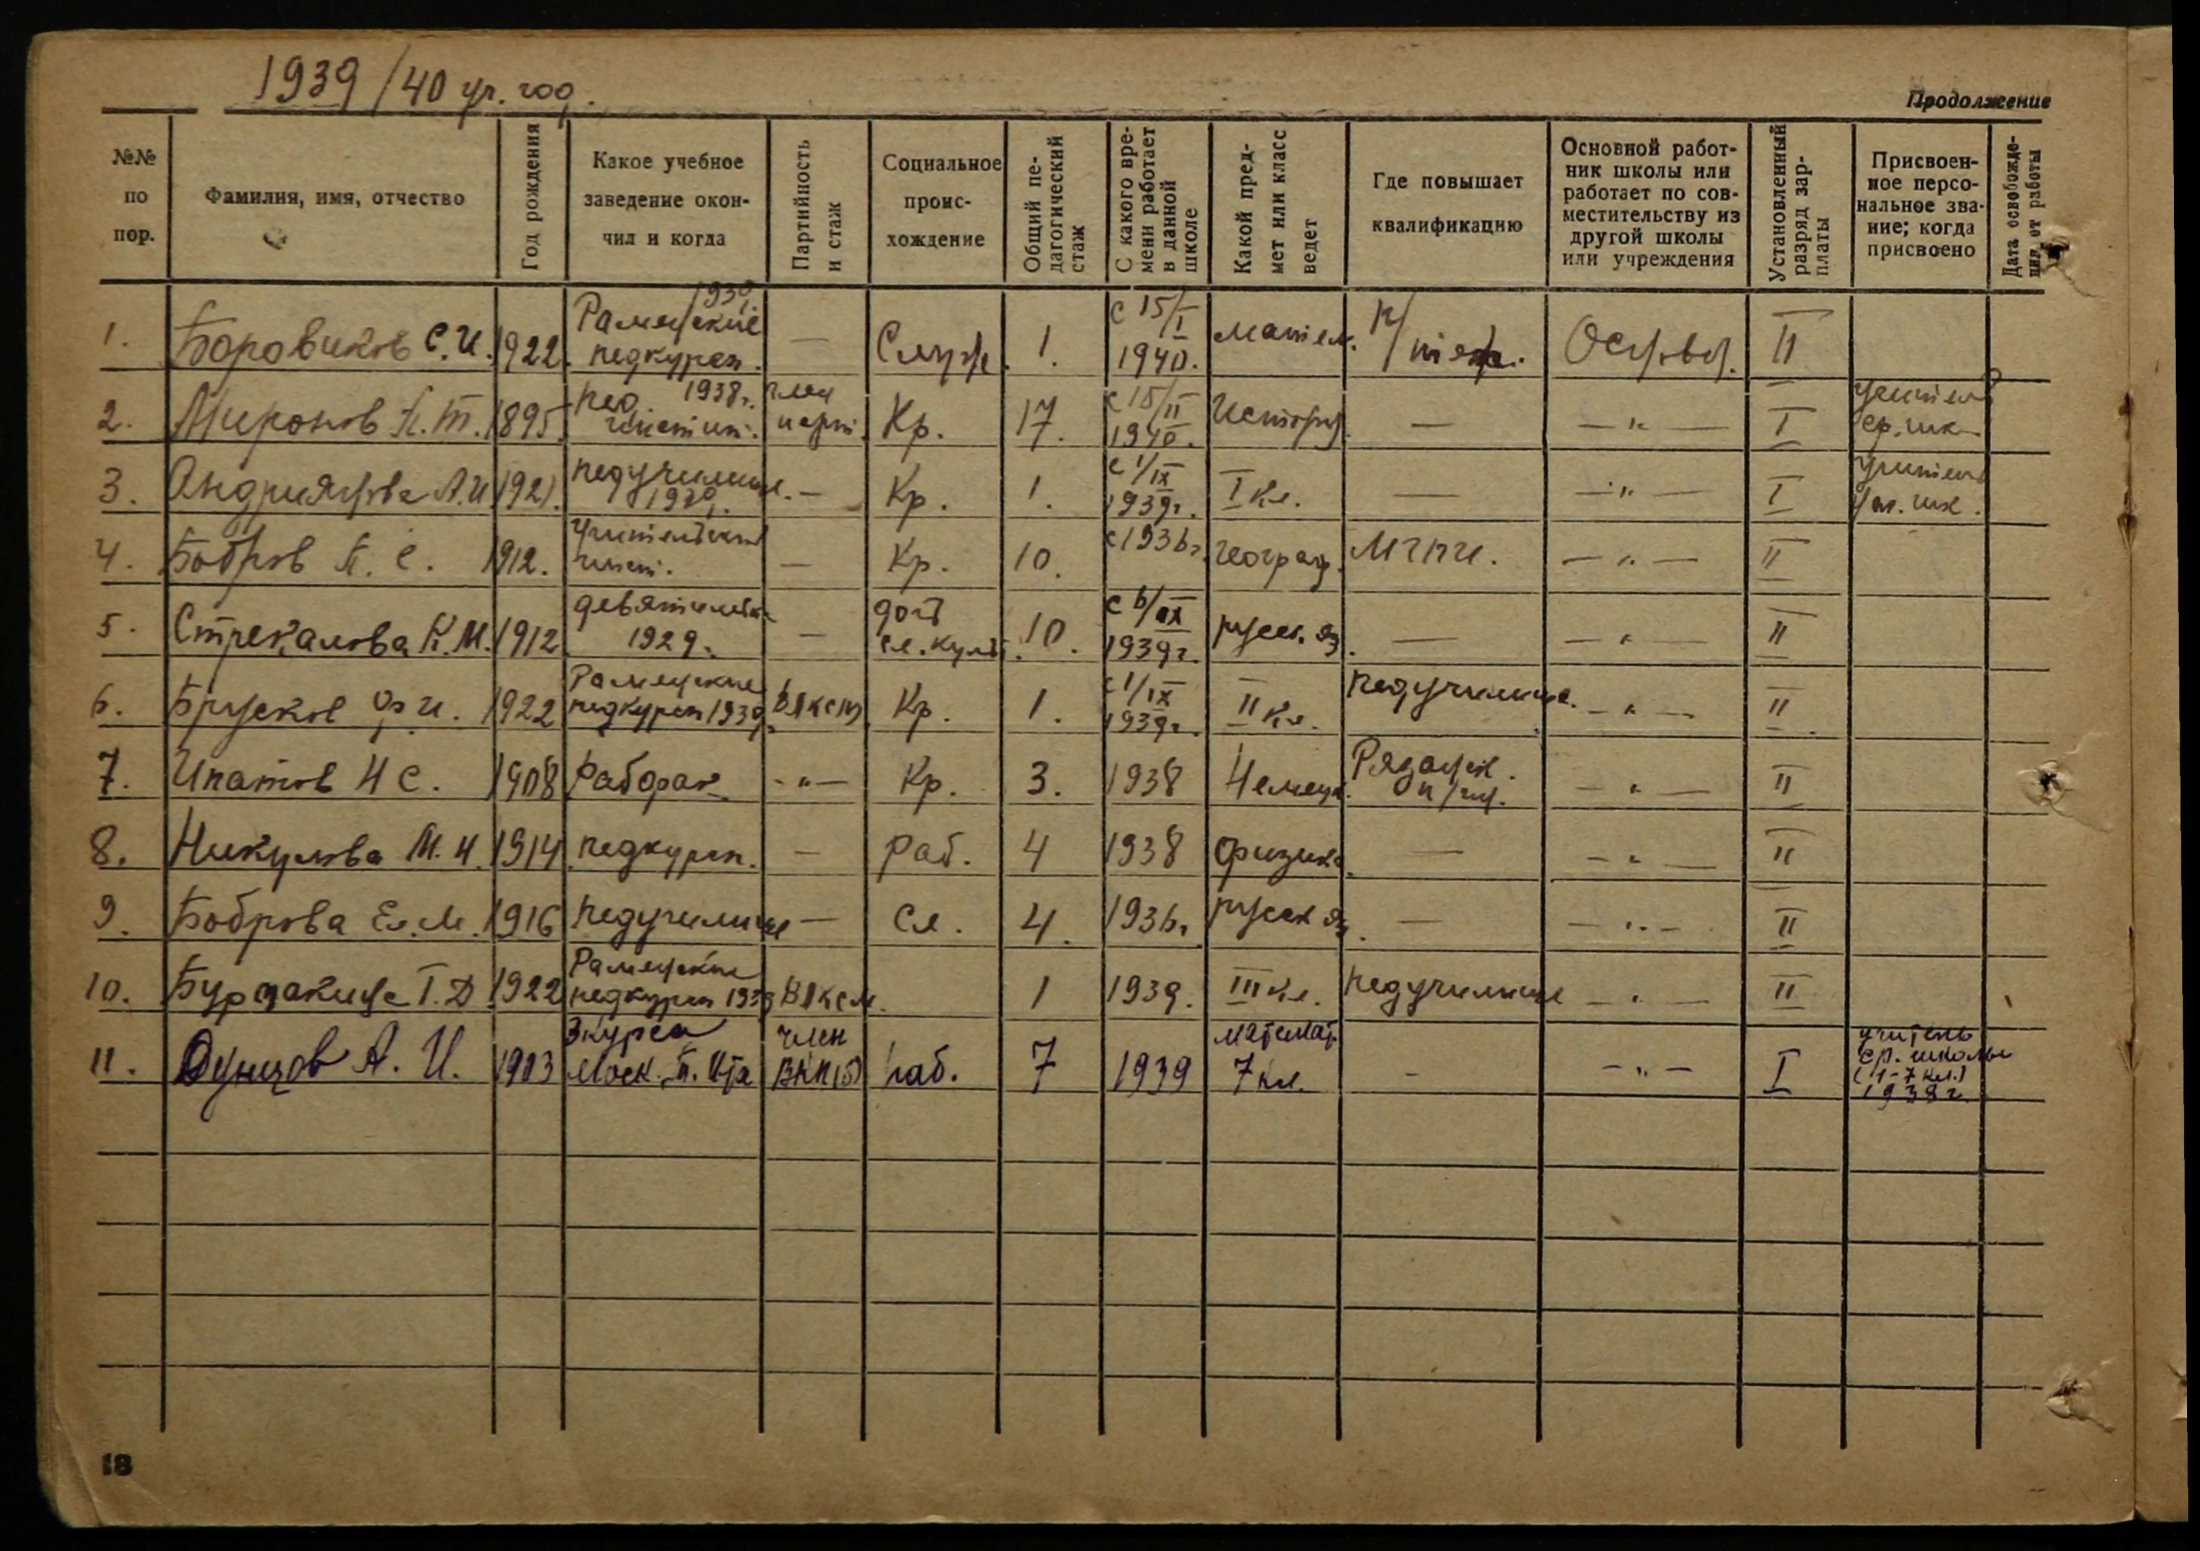 1939/40 уч. год.
Продолжение
№№ по пор.
Фамилия, имя, отчество
Год рождения
Какое учебное заведение окончил и когда
Партийность и стаж
Социальное происхождение
Общий педагогический стаж
С какого времени работает в данной школе
Какой предмет или класс ведет
Где повышает квалификацию
Основной работник школы или работает по совместительству из другой школы или учреждения
Установленный разряд зарплаты
Присвоенное персональное звание; когда присвоено
Дата освобождения от работы
1. Боровиков С. И. 1922. Раменские педкурсы 1939 — Служ. 1. с 15/I 1940. матем. Основн. II
2. Миронов П. Т. 1895. пед. институт. 1938г. член парт. Кр. 17. с 15/II 1940. История — —"— I учитель ср. шк
3. Андриянова А. И 1921. педучилище. 1939. — Кр. 1. с 1/IX 1939г. I кл. — —"— I учитель нач. шк.
4. Бобров П. С. 1912. учительский инст. — Кр. 10. с 1936г. географ. МГПИ. —"— II
5. Стрекалова К. М. 1912 девятилетка 1929. — дочь сл. культ. 10. с 6/IX 1939г. русск. яз. — —"— II
6. Брусков Ф. И. 1922 Раменские педкурсы 1939г. ВЛКСМ Кр. 1. с 1/IX 1939г. II кл. педучилище. —"— II
7. Ипатов Н С. 1908 рабфак —"— Кр. 3. 1938 Немецк. Рязанск. п/ин. —"— II
8. Никулова М. И. 1914 педкурсы. — раб. 4 1938 физика — —"— II
9. Боброва Ел. М. 1916 педучилище — сл. 4. 1936г. русск яз. — —"— II
10. Т. Д. 1922 Раменские педкурсы 1939 ВЛКСМ. 1 1939. III кл. педучилище —"— II
11. Дунцов А. И. 1903 3 курса Моск. П. И-та член ВКП(б) раб. 7 1939 математ. 7 кл. - —"— I учитель ср. школы (1-7 кл.) 1938г.
18